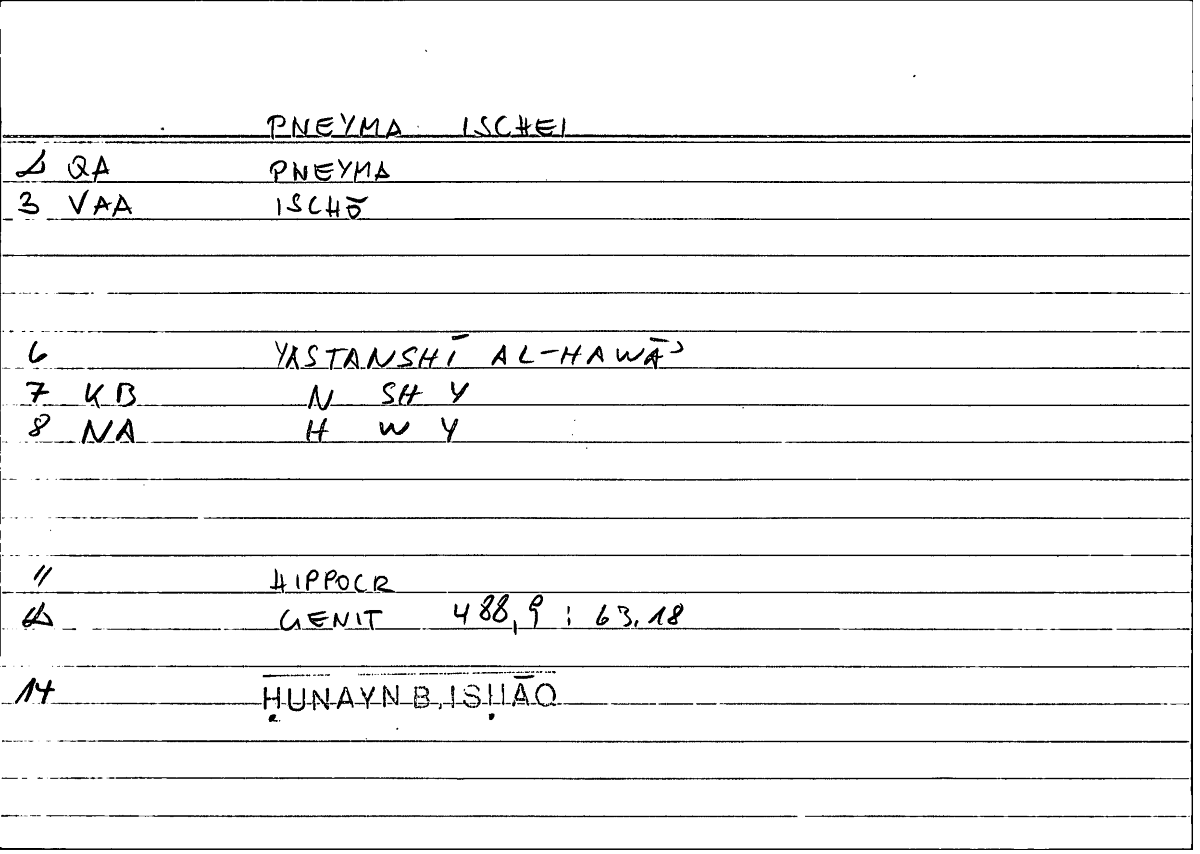 PNEYMA ISCHEI
QA PNEYMA
3 VAA ISCHŌ
6 YASTANSHĪ AL-HAWĀʾ
7 KB N SH Y
8 NA H W Y
11 HIPPOCR
GENIT 488,9 ; 63.18
14 ḤUNAYN B. ISḤĀQ